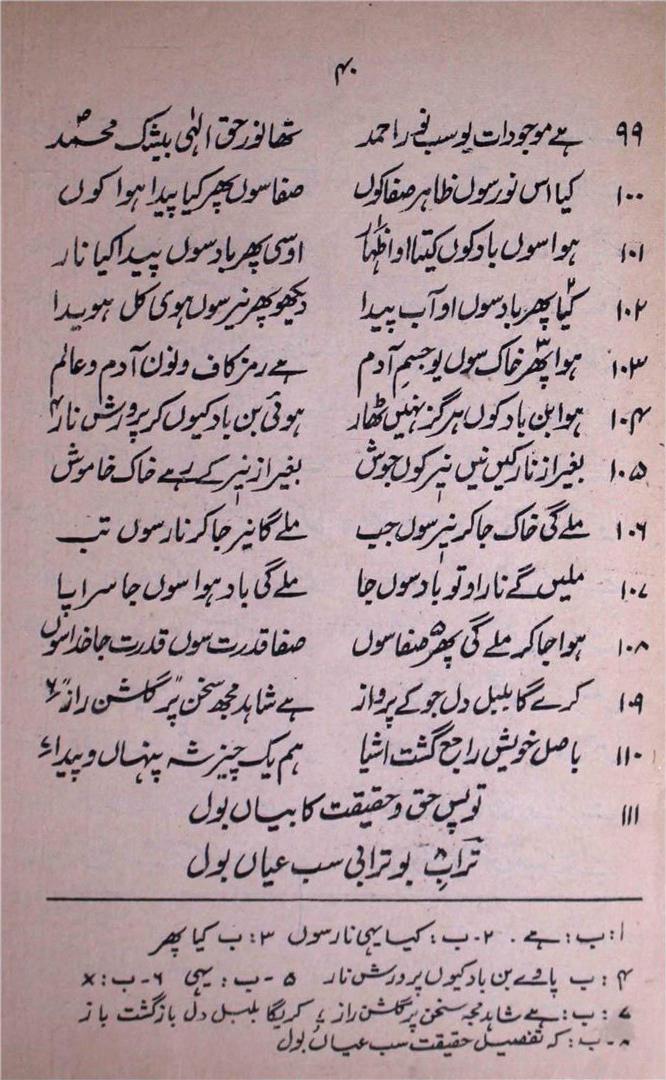 ۴۰
۹۹ ہے موجودات یو سب نور احمد تھا نور حق الٰہی بیشک محمدؐ
۱۰۰ کیا اس نور سوں ظاہر صفا کوں صفا سوں پھر کیا پیدا ہوا کوں
۱۰۱ ہوا سوں باد کوں کیتا او اظہار اوسی پھر باد سوں پیدا کیا نار
۱۰۲ کیا۲ پھر باد سوں او آب پیدا دیکھو پھر نیر سوں ہوی کل ہویدا
۱۰۳ ہوا پھر۳ خاک سوں یو جسمِ آدم ہے رمز کاف و نون آدم و عالم
۱۰۴ ہوا بن باد کوں ہرگز نہیں ٹھار ہوئی بن باد کیوں کر پرورش نار۴
۱۰۵ بغیر از نار کیں نیں نیر کوں جوش بغیر از نیر کے رہے خاک خاموش
۱۰۶ ملے گی خاک جا کر نیر سوں جب ملے گا نیر جا کر نار سوں تب
۱۰۷ ملیں گے نار او تو باد سوں جا ملے گی باد ہوا سوں جا سراپا
۱۰۸ ہوا جا کر ملے گی پھر۵ صفا سوں صفا قدرت سوں قدرت جا خدا سوں
۱۰۹ کرے گا بلبل دل جو کے پرواز ہے شاہد مجھ سخن پر "گلشن راز"۶
۱۱۰ باصل خویش راجع گشت اشیا ہم یک چیز شہ پنہاں و پیدا۷
۱۱۱ توپس حق و حقیقت کا بیاں بول
ترابؔ۸ بو ترابی سب عیاں بول
۱: ب: ہے۔ ۲۔ ب: کیا یہی نار سوں ۳: ب کیا پھر
۴: ب پاوے بن باد کیوں پرورش نار ۵ ۔ ب: یہی ۶۔ ب: x
۷: ب: ہے شاہد مجہ سخن پر گلشن راز ؍ کریگا بلبل دل بازگشت باز
۸۔ ب: کہ تفصیل حقیقت سب عیاں بول